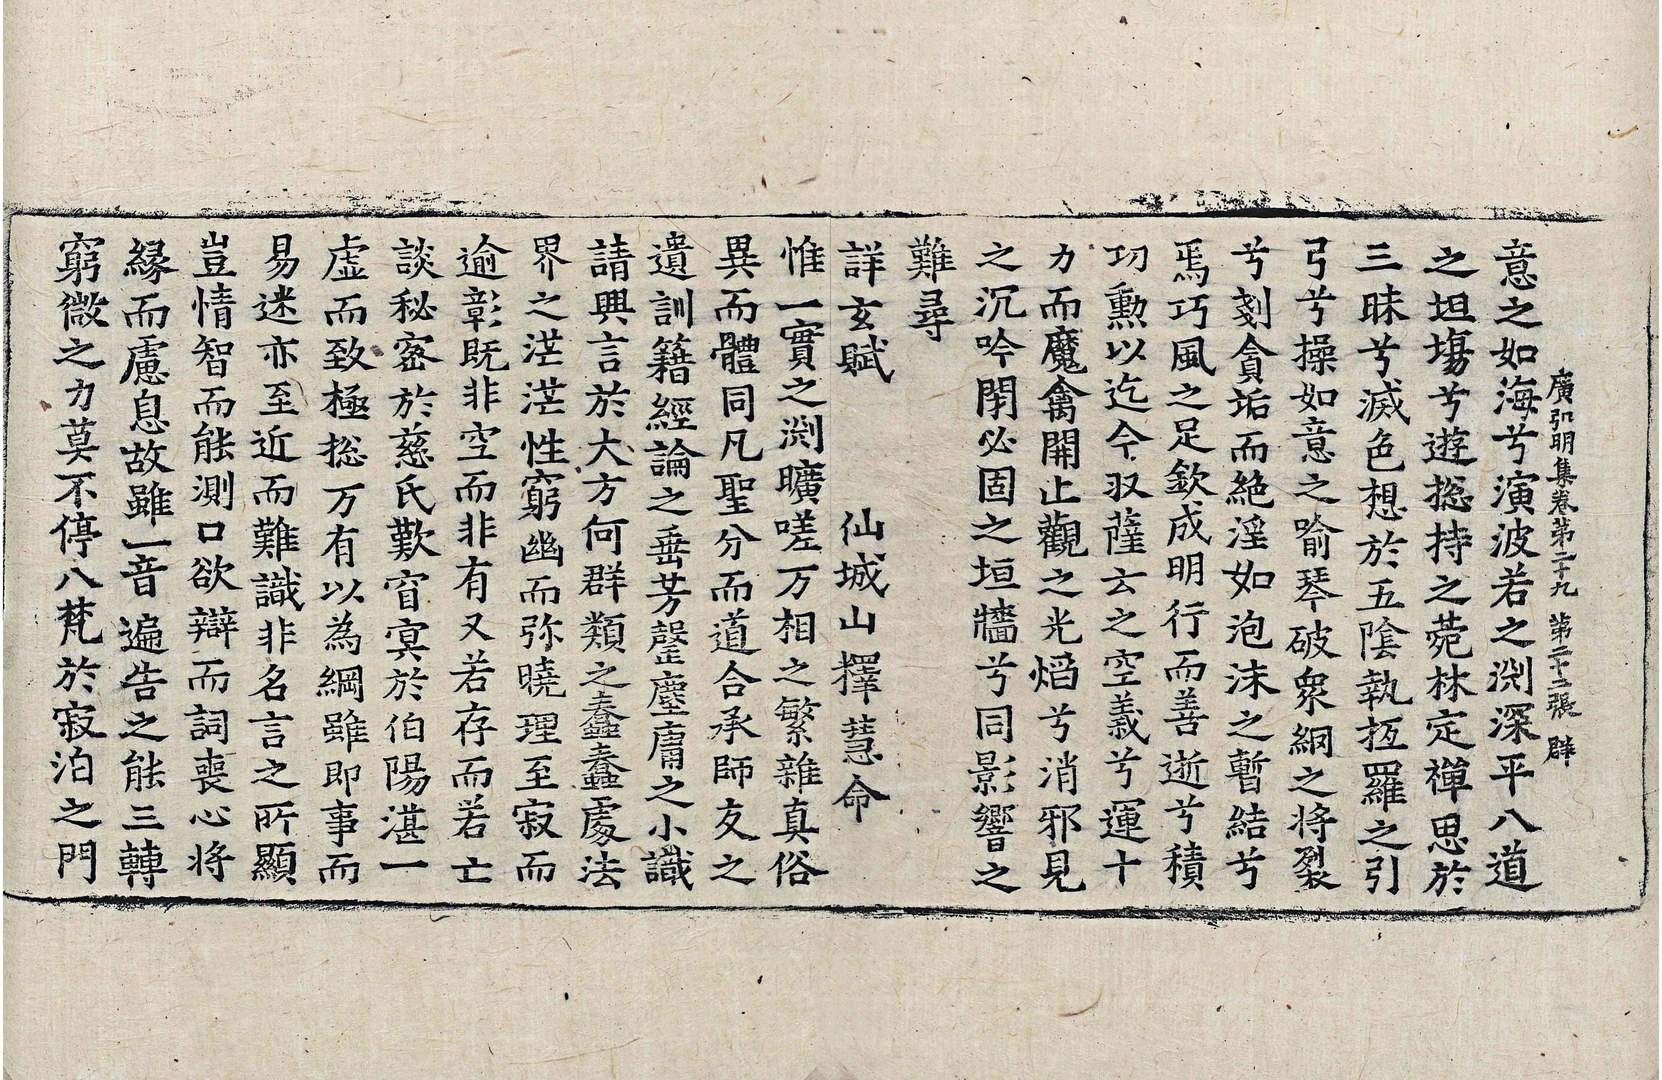 廣弘明集卷第二十九　第二十二張　辟
意之如海兮演波若之渕深平八道
之坦塲兮遊捴持之菀林定禪思於
三昧兮滅色想於五陰執抂羅之引
弓兮操如意之喻琴破衆網之将裂
兮剗貪垢而絶淫如泡沫之暫結兮
焉巧風之足欽成明行而善逝兮積
功勲以迄今収薩云之空義兮運十
力而魔禽開止觀之光熖兮消邪見
之沉吟閈必固之垣牆兮同影響之
難尋
詳玄賦　　仙城山釋慧命
惟一實之渕曠嗟万相之繁雜真俗
異而體同凡聖分而道合承師友之
遺訓籍經論之垂芳罄塵庸之小識
請興言於大方何群類之蠢蠢處法
界之茫茫性窮幽而弥曉理至寂而
逾彰既非空而非有又若存而若亡
談秘宻於慈氏歎窅冥於伯陽湛一
虚而致極捴万有以為綱雖即事而
易迷亦至近而難識非名言之所顯
豈情智而能測口欲辯而詞喪心将
縁而慮息故雖一音遍告之能三轉
窮微之力莫不停八梵於寂泊之門